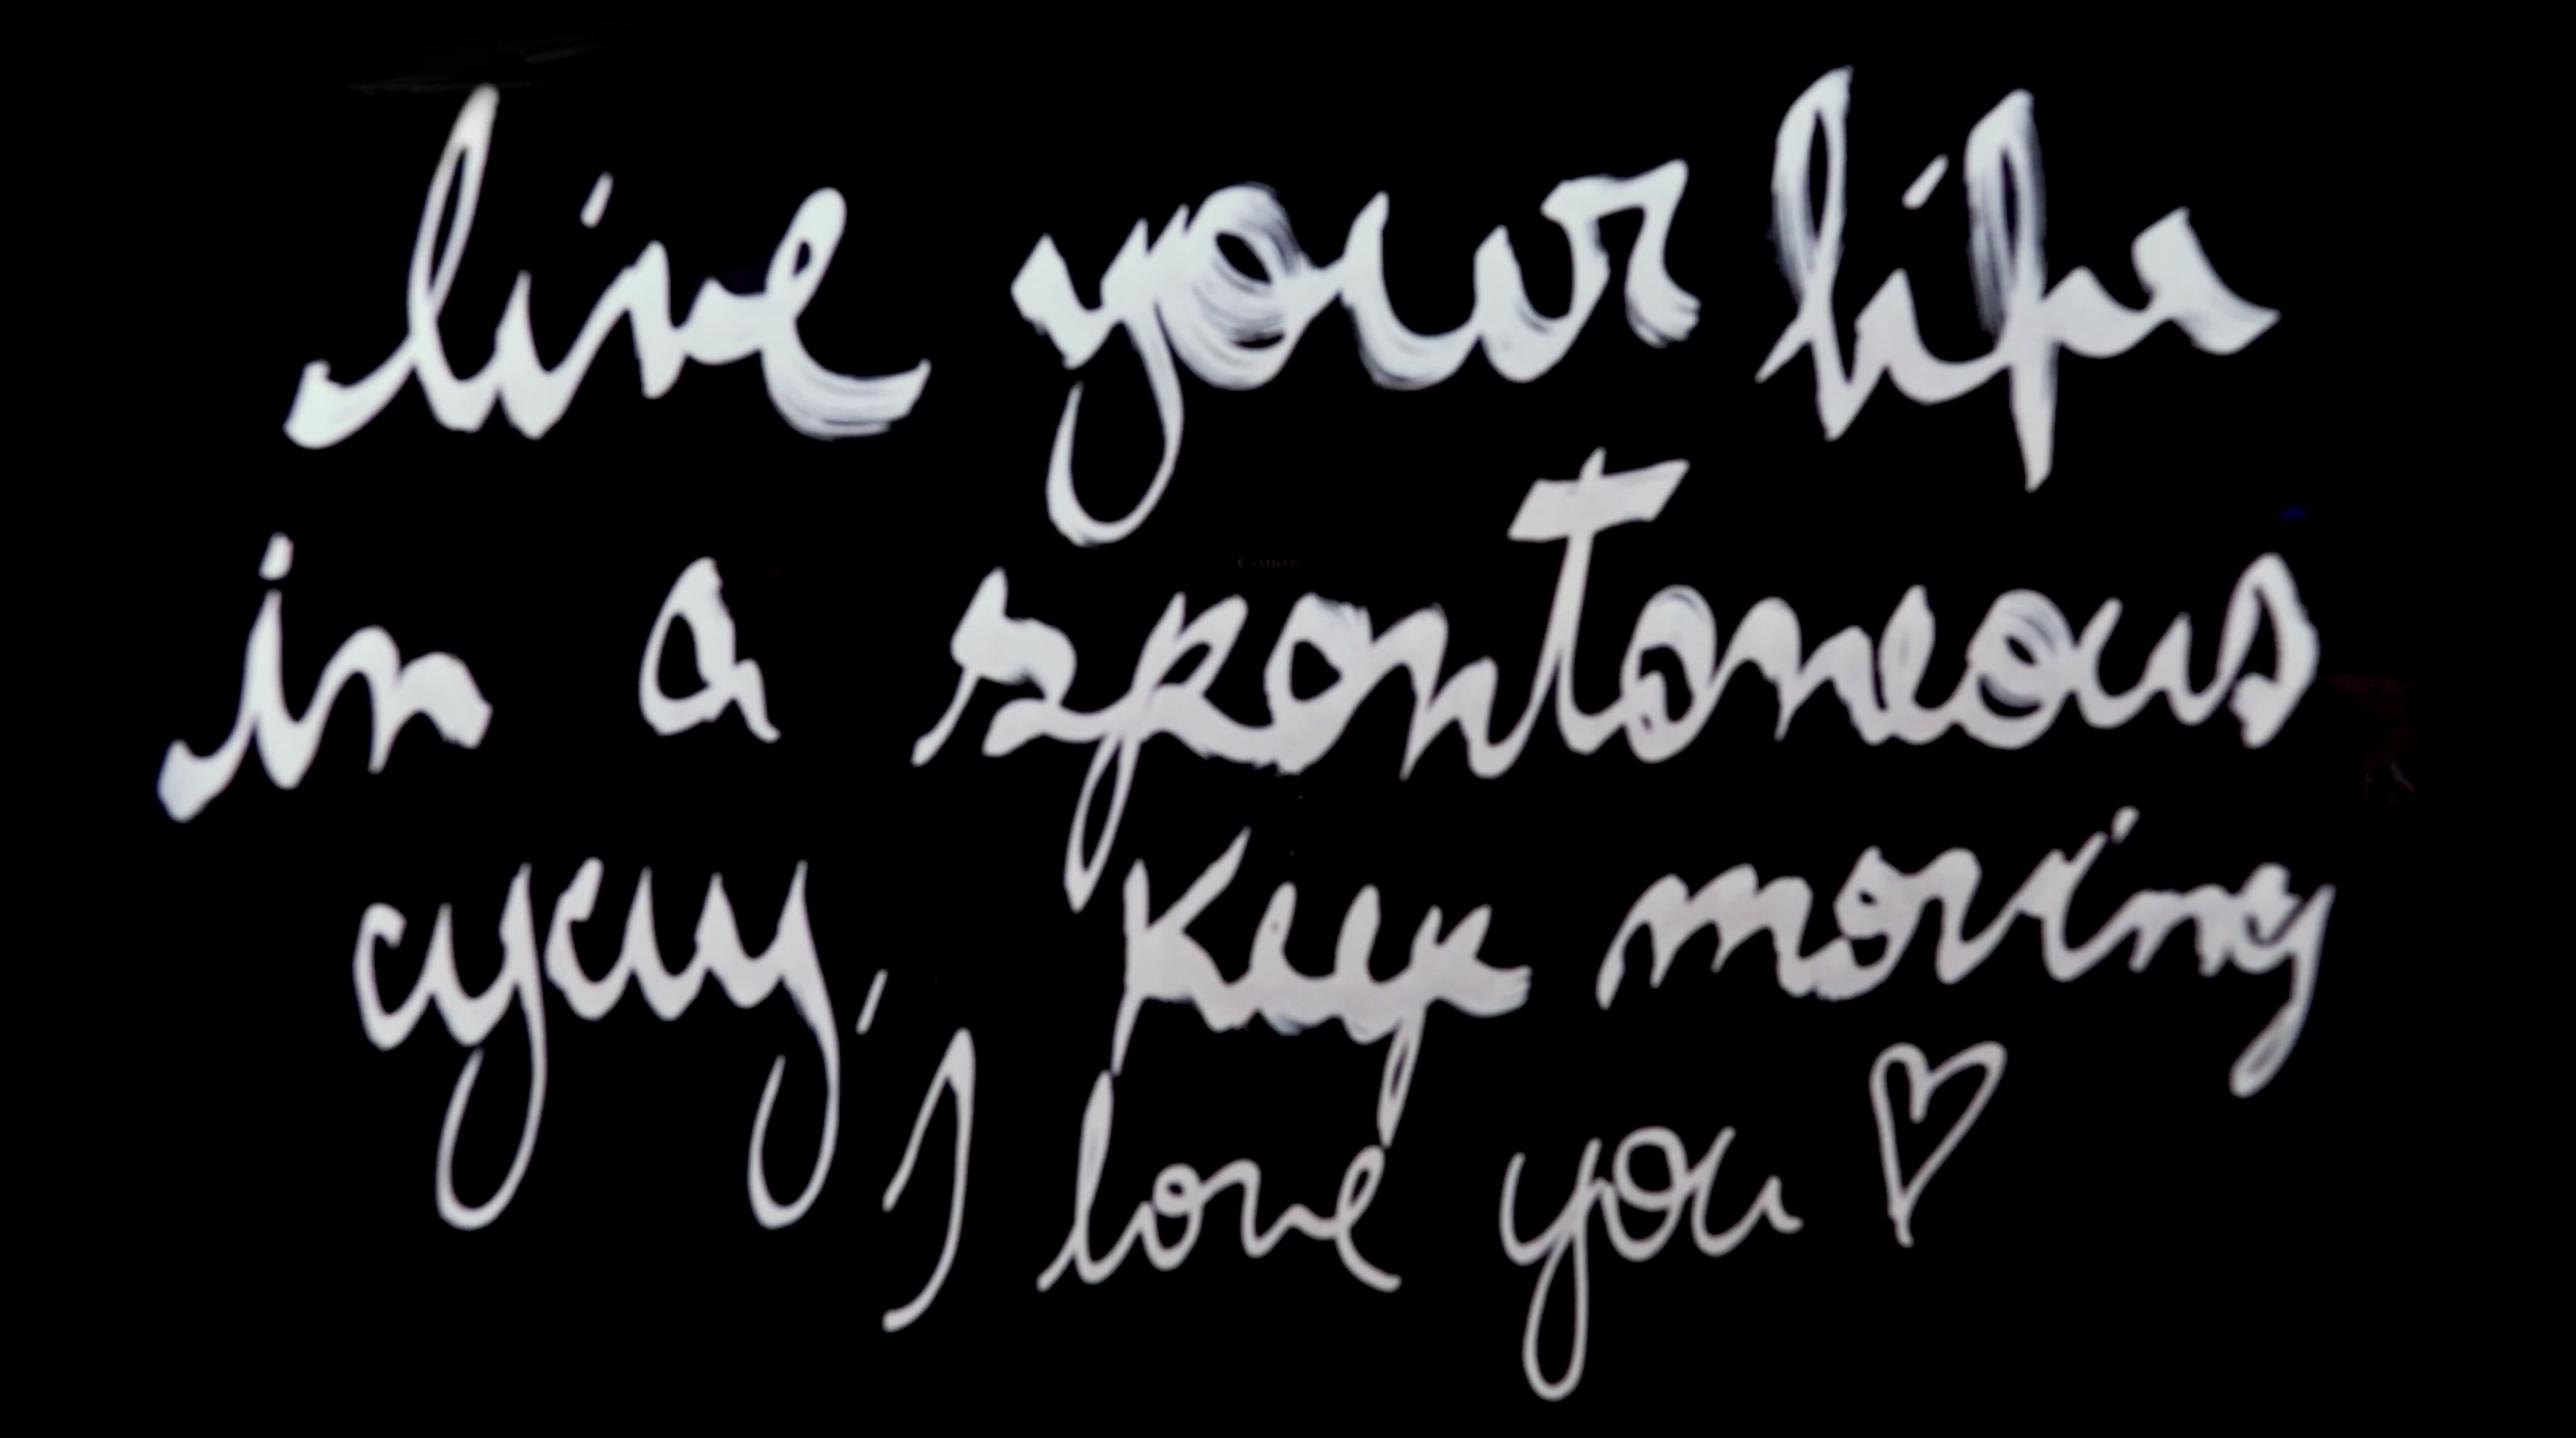 live your life
in a spontaneous
keep moving
I love you ♡